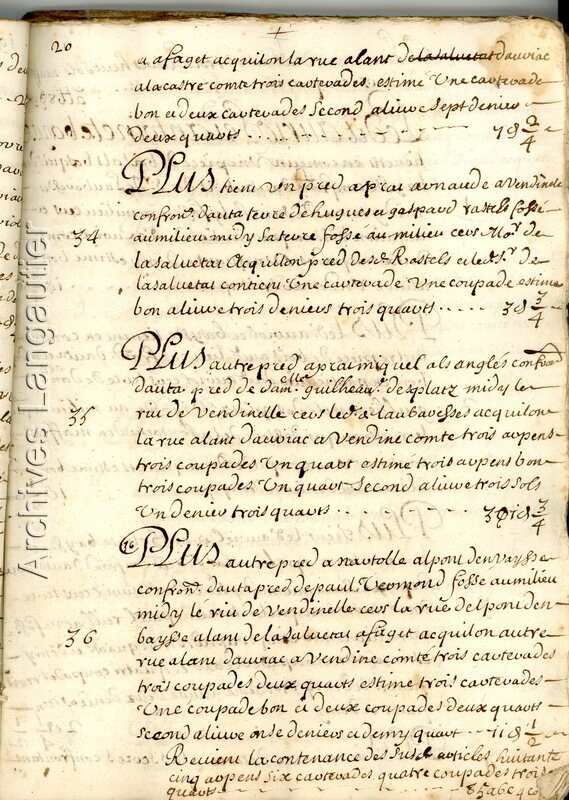 20
a afaget acquilon la rue alant de la saluetat dauriac
a la castre comte trois cartevades estime Une cartevade
bon et deux cartevades Second aliure Sept deniers
deux quarts . . . . . 7 d 2/4
PLUS tient Un pred a prat arnaude a Vendinele
confron. dauta terre de hugues et gaspard rastels fossé
34
au milieu midy sa terre fossé au milieu cers Mor. de
la saluetat Acquilon pred desd. Rastels et led. Sr. de
la saluetat contient Une cartevade Une coupade estime
bon aliure trois deniers trois quarts . . . . . 3 d 3/4
PLUS autre pred a prat miquel als anglés confron
dauta pred de damlle. guilheau. desplatz midy le
35
riu de Vendinelle cers led. a laubaresses acquilon
la rue alant dauriac a Vendine comte trois arpens
trois coupades Un quart estimé trois arpens bon
trois coupades Un quart Second aliure trois sols
Un denier trois quarts . . . . . 3 s 1 d 3/4
36 PLUS autre pred a navtolle al pont den Vaysse
confron. dauta pred de paul Vermond fosse au milieu
midy le riu de Vendinelle cers la rue del pont den
36
baysse alant de la saluetat a faget acquilon autre
rue alant dauriac a Vendine comte trois cartevades
trois coupades deux quarts estime trois cartevades
Une coupade bon et deux coupades deux quarts
second aliure onse deniers et demy quart . . 11 d 1/2
Revient la contenance des susd. articles huitante
cinq arpens six cartevades quatre coupades trois
quarts . . . . . 85 a 6 c 4 co
Archives Langautier